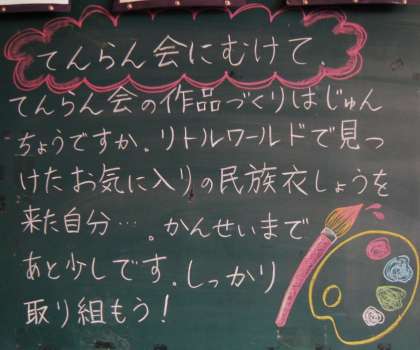 てんらん会にむけて.
てんらん会の作品づくりはじゅん
ちょうですか.リトルワールドで見つ
けたお気に入りの民族衣しょうを
来た自分….。かんせいまで
あと少しです.しっかり
取り組もう!